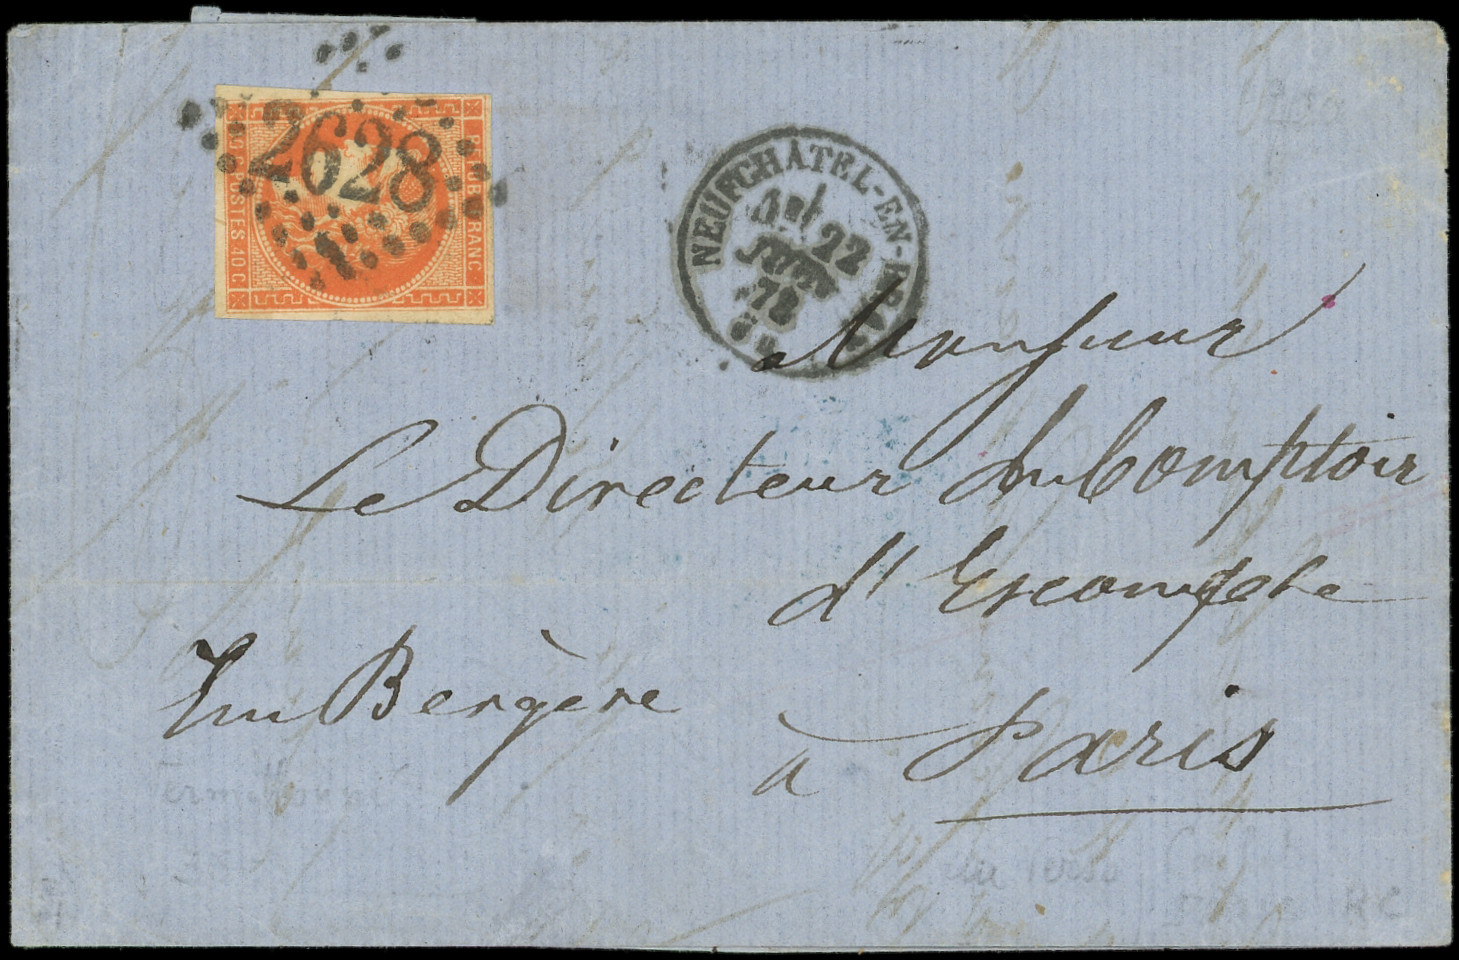 2628
REPUB FRANC
POSTES 40 C
NEUFCHATEL-EN-
22
JUIN
Monsieur
Le Directeur du Comptoir
d'Escompte
Bergère
à Paris
au verso